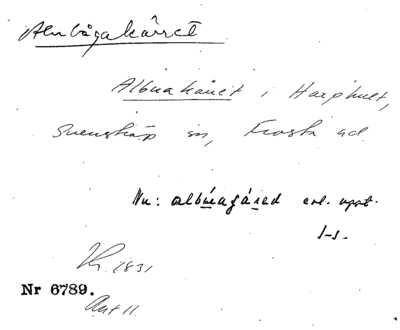 Armbågakärret
Albuakäret i Harphult,
Svensköp sn, Frosta hd.
Nu: albúagá red enl. uppt.
I-s.
Kr. 1831
Nr 6789.
Akt 11